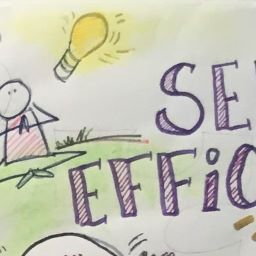 SE
EFFiC